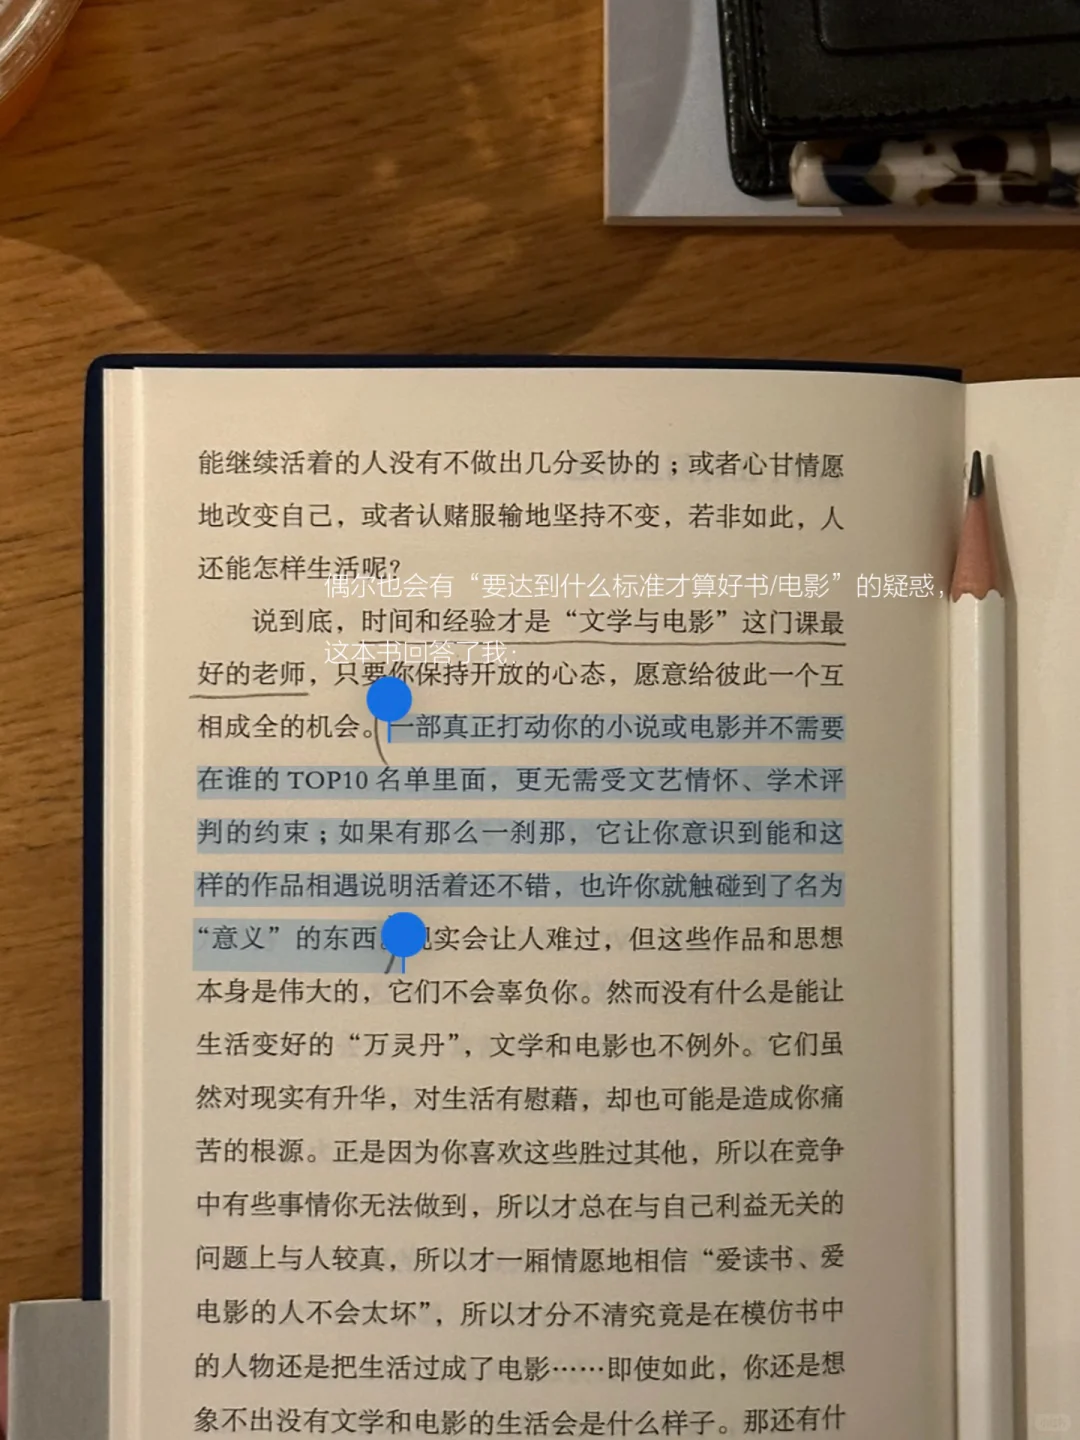 能继续活着的人没有不做出几分妥协的；或者心甘情愿
地改变自己，或者认赌服输地坚持不变，若非如此，人
还能怎样生活呢？
偶尔也会有“要达到什么标准才算好书/电影”的疑惑，
说到底，时间和经验才是“文学与电影”这门课最
这本书回答了我：
好的老师，只要你保持开放的心态，愿意给彼此一个互
相成全的机会。一部真正打动你的小说或电影并不需要
在谁的 TOP10 名单里面，更无需受文艺情怀、学术评
判的约束；如果有那么一刹那，它让你意识到能和这
样的作品相遇说明活着还不错，也许你就触碰到了名为
“意义”的东西。现实会让人难过，但这些作品和思想
本身是伟大的，它们不会辜负你。然而没有什么是能让
生活变好的“万灵丹”，文学和电影也不例外。它们虽
然对现实有升华，对生活有慰藉，却也可能是造成你痛
苦的根源。正是因为你喜欢这些胜过其他，所以在竞争
中有些事情你无法做到，所以才总在与自己利益无关的
问题上与人较真，所以才一厢情愿地相信“爱读书、爱
电影的人不会太坏”，所以才分不清究竟是在模仿书中
的人物还是把生活过成了电影……即使如此，你还是想
象不出没有文学和电影的生活会是什么样子。那还有什